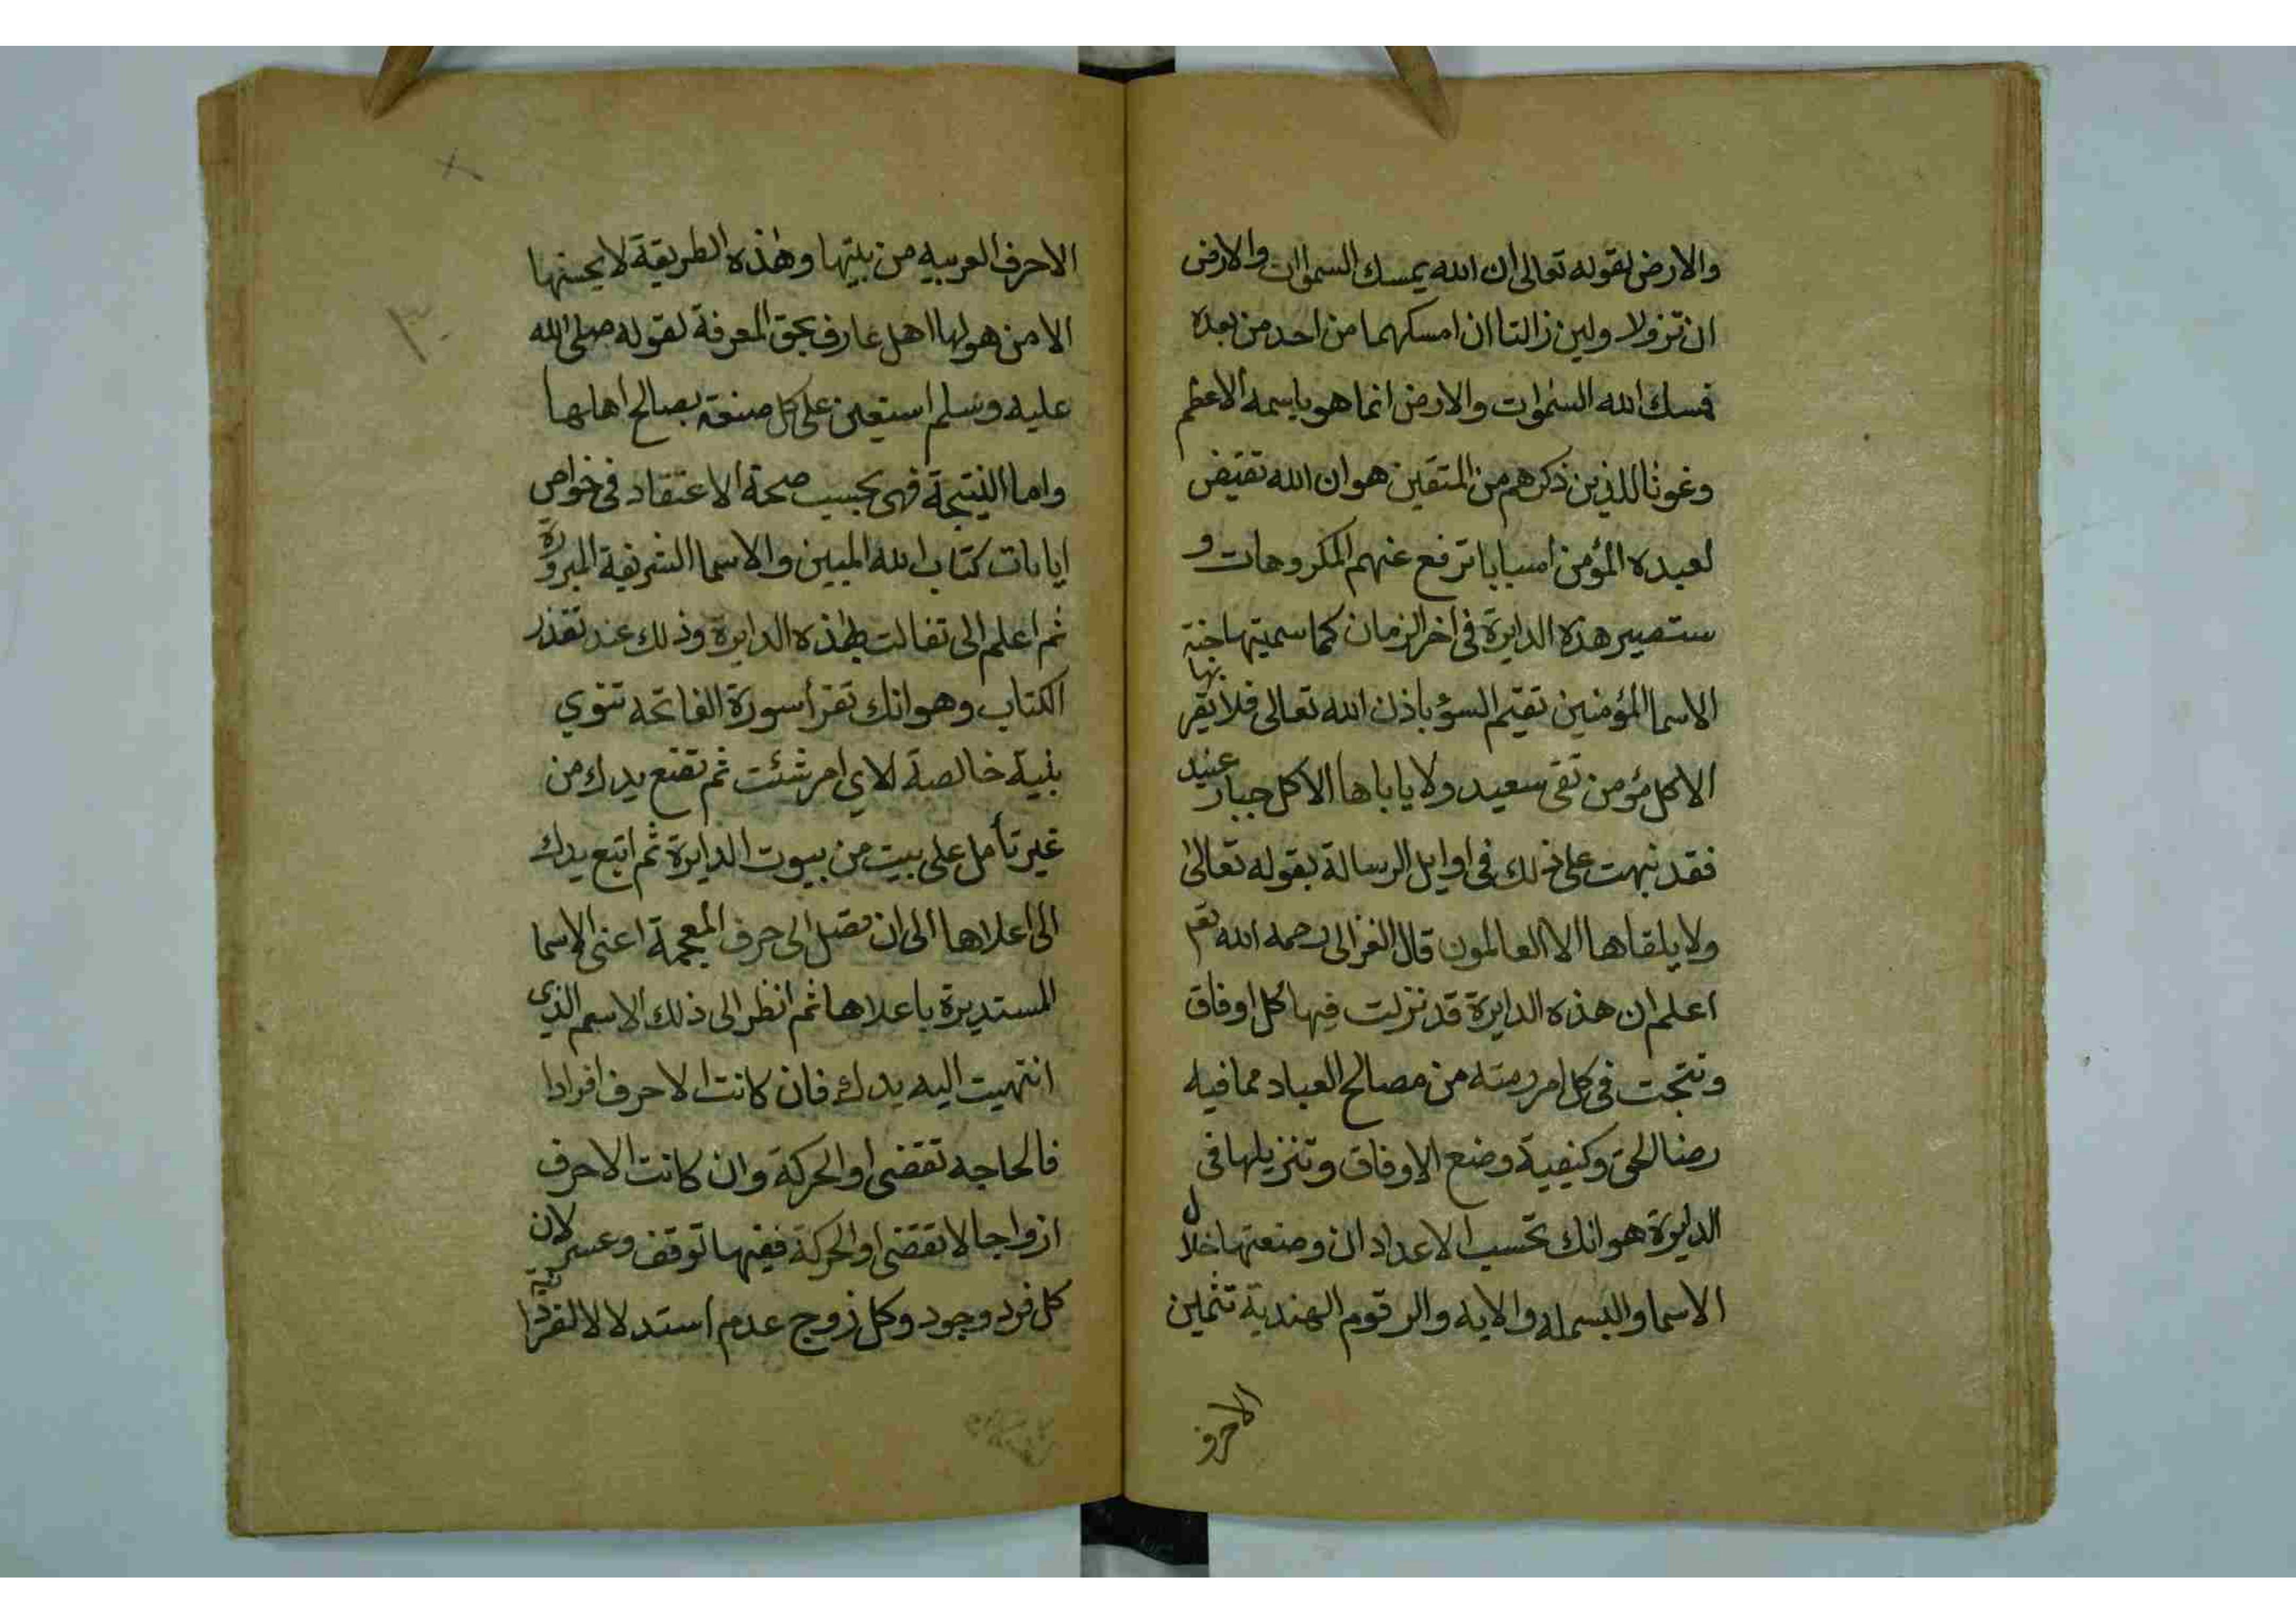 والارض لقوله تعالى ان الله يمسك السموات والارض
ان تزولا ولين زالتا ان امسكهما من احد من بعده
فمسك الله السموات والارض انما هو باسمه الاعظم
وغوثا للذين ذكرهم من المتقين هو ان الله تقيض
لعبده المؤمن اسبابا ترفع عنهم المكروهات و
ستصير هذه الدايرة في اخر الزمان كما سميتها جنة
الاسما المؤمنين تقيم السؤ باذن الله تعالى فلا يقر بها
الا كل مؤمن تقى سعيد ولا ياباها الا كل جبار عنيد
فقد نبهت على ذلك في اوايل الرسالة بقوله تعالى
ولا يلقاها الا العالمون قال الغزالى رحمه الله تع
اعلم ان هذه الدايرة قد نزلت فيها كل اوفاق
ونتجت في كل امر رمته من مصالح العباد مما فيه
رضا الحق وكيفية وضع الاوفاق وتنزيلها فى
الدايرة هو انك تحسب الاعداد ان وضعتها خلال
الاسما والبسمله والايه والرقوم الهندية تثملين
الاحرف
١٣٠
الاحرف العربيه من بيتها وهذه الطريقة لا يحسنها
الا من هو لها اهل عارف بحق المعرفة لقوله صلى الله
عليه وسلم استعين على كل صنعة بصالح اهلها
واما النتيجة فهى بحسب صحة الاعتقاد في خواص
ايات كتاب الله المبين والاسما الشريفة المبرورة
ثم اعلم الى تفالت بهذه الدايرة وذلك عند تقذر
الكتاب وهو انك تقرأ سورة الفاتحه تنوي
بنية خالصة لاي امر شئت ثم تضع يدك من
غير تأمل على بيت من بيوت الدايرة ثم اتبع يدك
الى اعلاها الى ان تصل الى حرف المعجمة اعنى الاسما
المستديرة باعلاها ثم انظر الى ذلك الاسم الذى
انتهيت اليه يدك فان كانت الاحرف افرادا
فالحاجه تقضى او الحركة وان كانت الاحرف
ازواجا لا تقضى او الحركة ففيها توقف وعسر لان
كل فرد وجود وكل زوج عدم استدلالا لفردانية